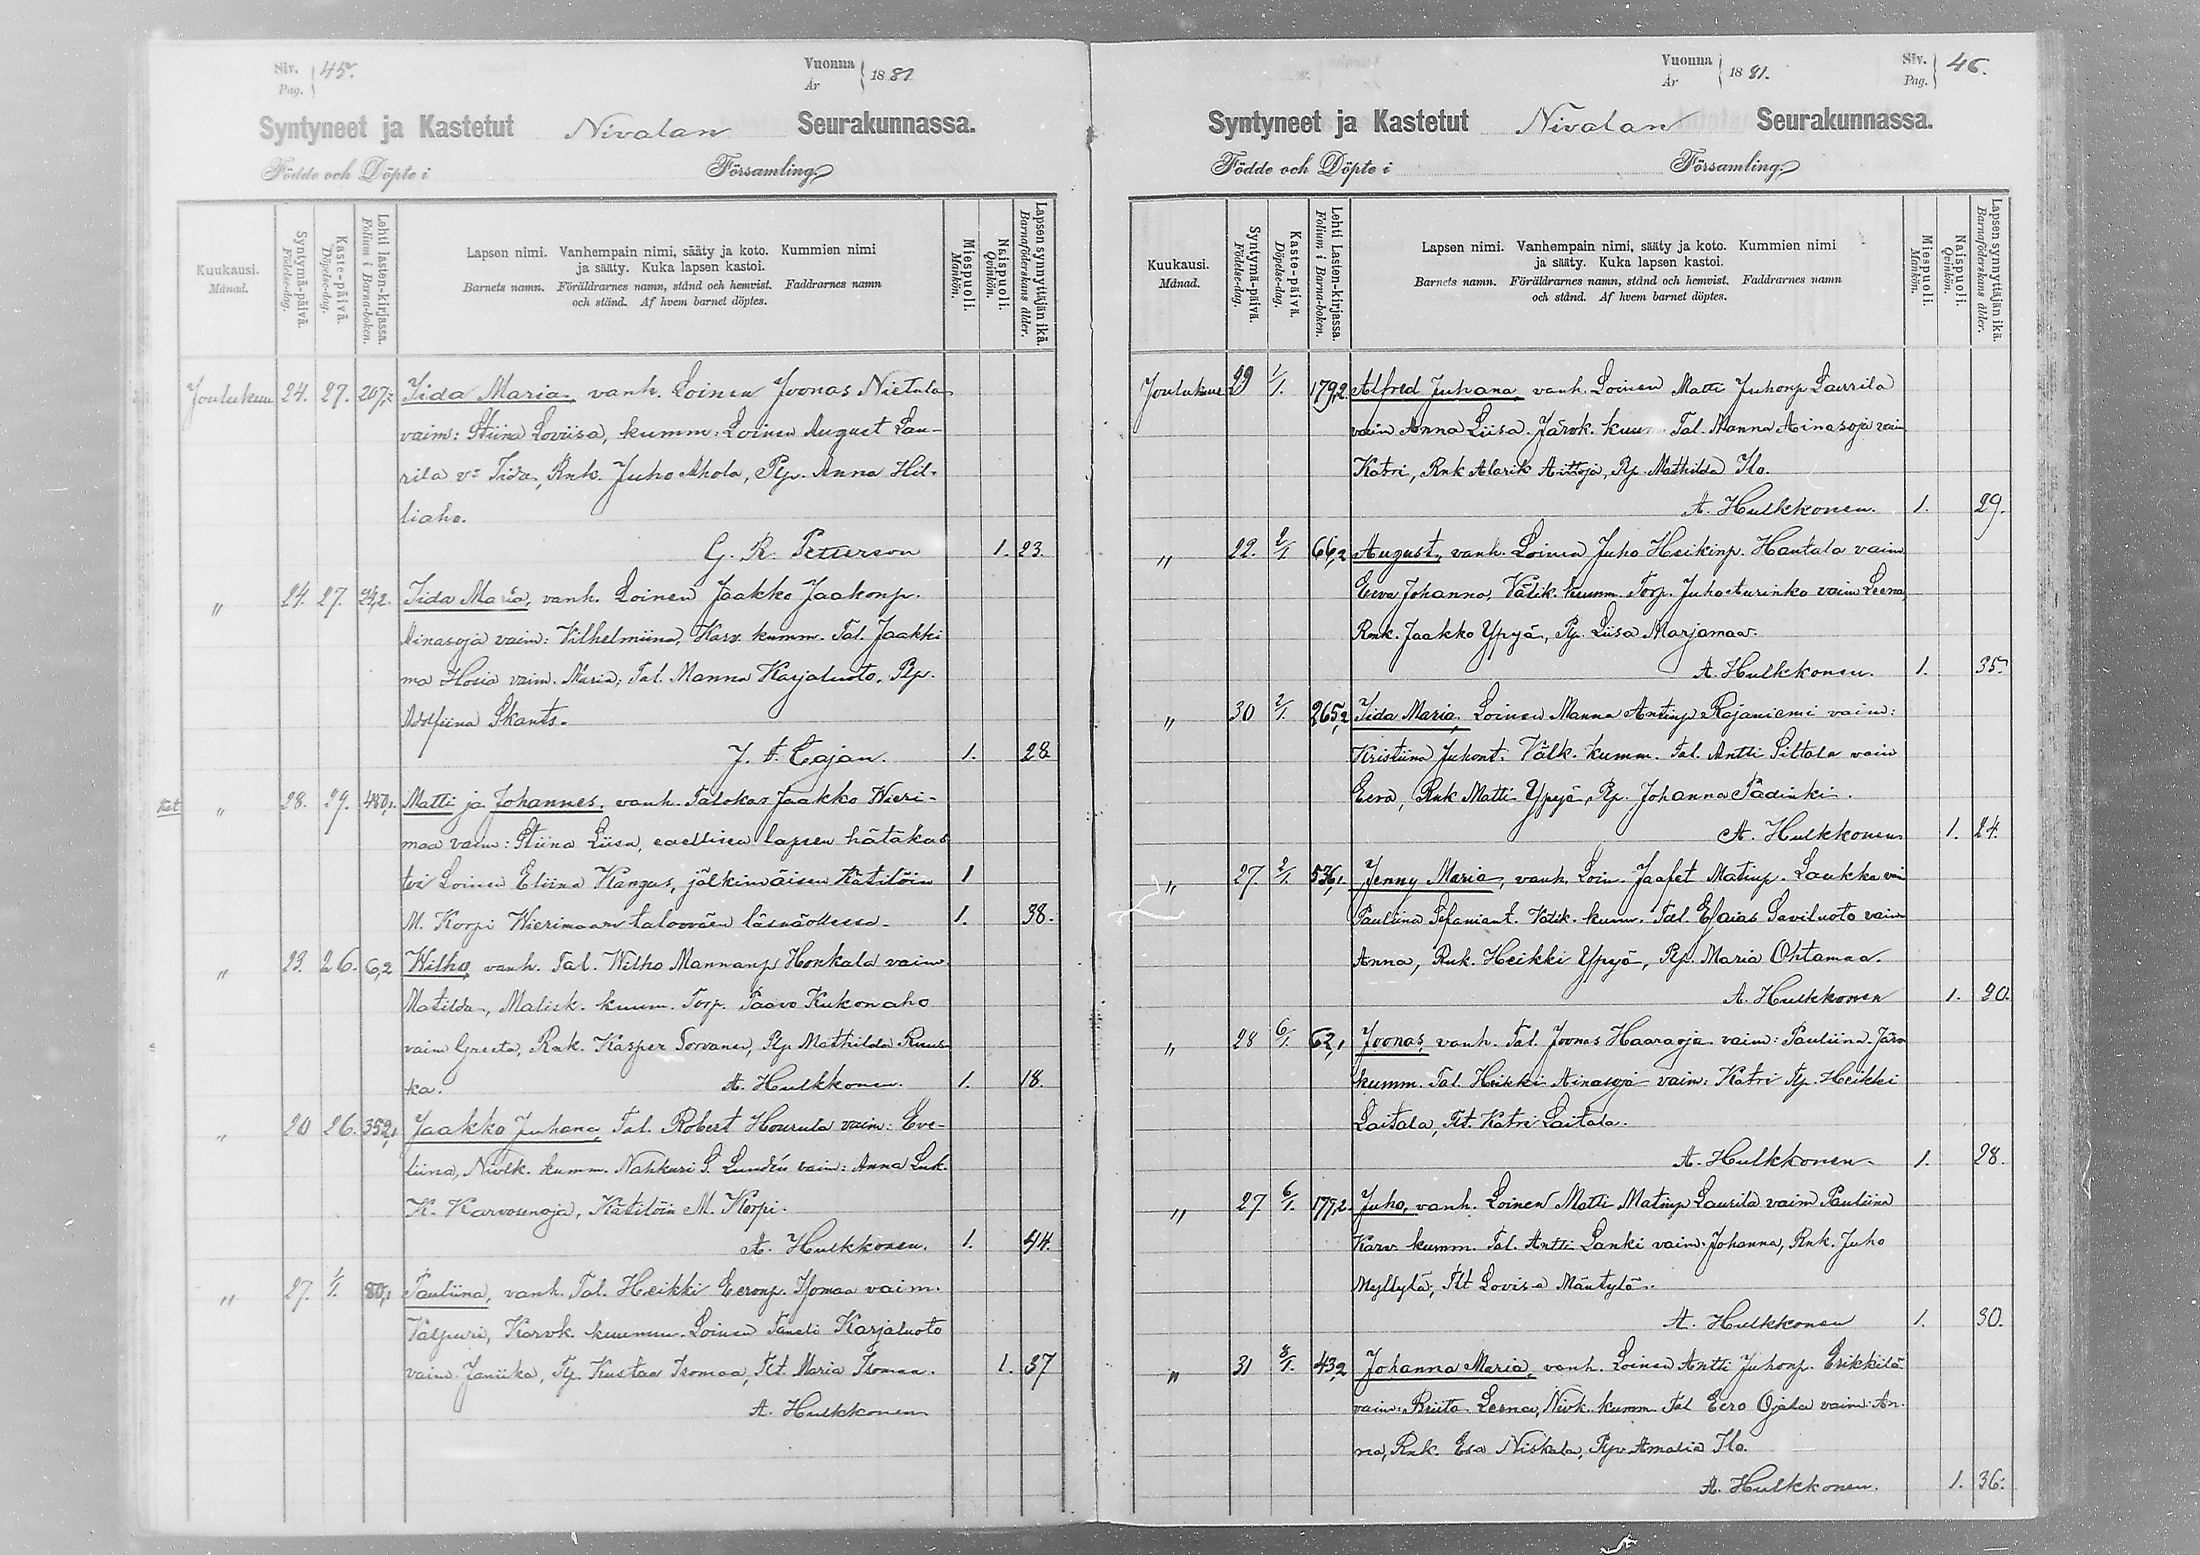 Siv. 45. Vuonna 1881
Pag. År
Syntyneet ja Kastetut Nivalan Seurakunnassa.
Födde och Döpte i Församling.
Kuukausi. Månad.
Syntymä-päivä. Födelse-dag.
Kaste-päivä. Döpelse-dag.
Lehti lasten-kirjassa. Folium i Barna-boken.
Lapsen nimi. Vanhempain nimi, sääty ja koto. Kummien nimi
ja sääty. Kuka lapsen kastoi.
Barnets namn. Föräldrarnes namn, stånd och hemvist. Faddrarnes namn
och stånd. Af hvem barnet döptes.
Miespuoli. Mankön.
Naispuoli. Qvinkön.
Lapsen synnyttäjän ikä. Barnaföderskans ålder.
Joulukuu 24. 27. 207,2 Iida Maria, vanh. Loinen Joonas Nietula
vaim: Stiina Loviisa, kumm: Loinen August Lau-
rila v= Iida, Rnk. Juho Ahola, Pp. Anna Hil-
liaho.
G. R. Petterson 1. 23.
" 24. 27. 24,2. Iida Maria, vanh. Loinen Jaakko Jaakonp.
Ainasoja vaim: Vilhelmiina, Karv. kumm. Tal. Jaakki
ma Hosia vaim. Maria, Tal. Manna Karjaluoto, Pp.
Adolfiina Skants.
J. A. Cajan. 1. 28
" 28. 29. 480,1 Matti ja Johannes, vanh. Talokas Jaakko Wieri-
maa vaim: Stiina Liisa, edellisen lapsen hätäkas
tei Loinen Eliina Kangas, jälkimäisen Kätilöin 1
M. Korpi Wierimaan taloowäen läsnäollessa. 1. 38.
" 23. 26. 6,2 Wilho, vanh. Tal. Wilho Mannanp Honkala vaim
Matilda, Malisk. kumm. Torp. Paavo Kukonaho
vaim Greeta, Rnk. Kasper Torvanen, Pp Mathilda Ruus
ka. A. Hulkkonen. 1. 18.
" 20 26. 352,1 Jaakko Juhana, Tal. Robert Hourula vaim: Eve-
liina, Nivlk. kumm. Nahkuri S. Lundén vaim: Anna Luk.
K. Karvosenoja, Kätilöin M. Korpi.
A. Hulkkonen. 1. 44.
" 27. 1/1. 80,1 Pauliina, vanh. Tal. Heikki Eeronp. Isomaa vaim.
Valpuri, Karvk. kumm. Loinen Taneli Karjaluoto
vaim Janiika, Pp. Kustaa Isomaa, Tlt. Maria Isomaa. 1. 37
A. Hulkkonen
Vuonna 1881. Siv. 46.
År Pag.
Syntyneet ja Kastetut Nivalan Seurakunnassa.
Födde och Döpte i Församling.
Kuukausi. Månad.
Syntymä-päivä. Födelse-dag.
Kaste-päivä. Döpelse-dag.
Lehti Lasten-kirjassa. Folium i Barna-boken.
Lapsen nimi. Vanhempain nimi, sääty ja koto. Kummien nimi
ja sääty. Kuka lapsen kastoi.
Barnets namn. Föräldrarnes namn, stånd och hemvist. Faddrarnes namn
och stånd. Af hvem barnet döptes.
Miespuoli. Mankön.
Naispuoli. Qvinkön.
Lapsen synnyttäjän ikä. Barnaföderskans ålder.
Joulukuu 29 1/1. 179,2. Alfred Juhana, vanh. Loinen Matti Juhonp Laurila
vaim Anna Liisa. Järvk. kum Tal. Manna Ainasoja vaim
Katri, Rnk Alarik Aittoja, Pp. Mathilda Ilo.
A. Hulkkonen. 1. 29.
" 22. 2/1 66,2 August, vanh. Loinen Juho Heikinp. Hautala vaim
Eeva Johanna, Välik. kumm. Torp. Juho Aurinko vaim Leena,
Rnk. Jaakko Ypyä, Pp. Liisa Marjamaa.
A. Hulkkonen. 1. 35.
" 30 2/1. 265,2 Iida Maria, Loinen Manna Antinp Rajaniemi vaim:
Kristiina Juhont. Välk. kumm. Tal. Antti Siltala vaim
Eeva, Rnk Matti Ypyä, Pp. Johanna Padinki.
A. Hulkkonen 1. 24.
" 27. 2/1. 536,1 Jenny Maria, vanh. Loin. Jaafet Matinp. Laukka vai
Pauliina Tefaniant. Välik. kum. Tal. Esaias Saviluoto vaim
Anna, Rnk. Heikki Ypyä, Pp. Maria Ohtamaa.
A. Hulkkonen 1. 30.
" 28 6/1. 62,1 Joonas, vanh. Tal. Joonas Haaraoja vaim: Pauliina. Järv
kumm. Tal. Heikki Ainasoja vaim: Katri Pp. Heikki
Laitala, Tlt. Katri Laitala.
A. Hulkkonen. 1. 28.
" 27 6/1. 177,2. Juho, vanh. Loinen Matti Matinp Laurila vaim Pauliina
Karv. kumm. Tal. Antti Lanki vaim. Johanna, Rnk. Juho
Myllylä, Tlt Lovisa Mäntylä.
A. Hulkkonen 1. 30.
" 31 8/1. 43,2 Johanna Maria, vanh. Loinen Antti Juhonp. Erikkilä
vaim: Briita Leena, Nivk. kumm. Tal Eero Ojala vaim: An-
na, Rnk. Esa Niskala, Pp. Amalia Ilo.
A. Hulkkonen. 1. 36.